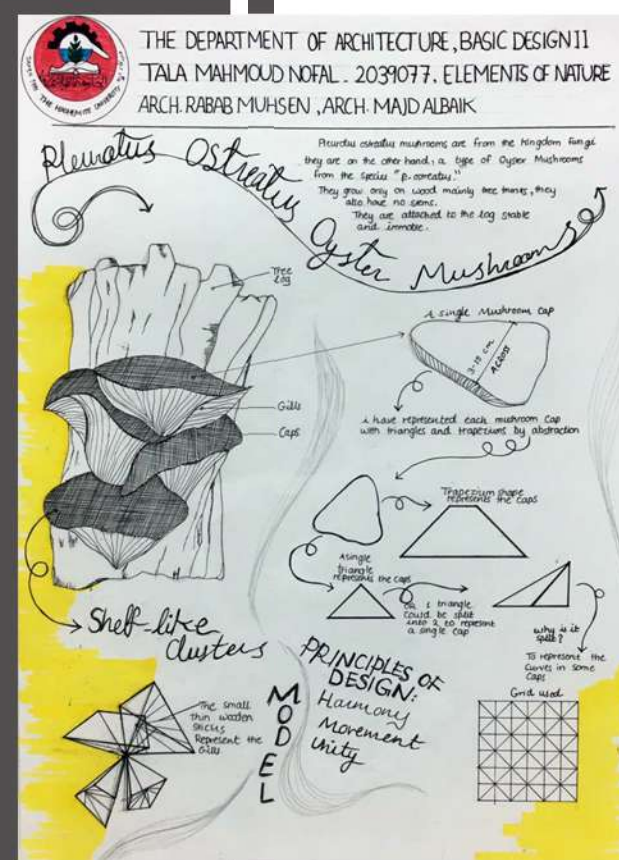 THE HASHEMITE UNIVERSITY
THE DEPARTMENT OF ARCHITECTURE, BASIC DESIGN II
TALA MAHMOUD NOFAL - 2039077. ELEMENTS OF NATURE
ARCH. RABAB MUHSEN, ARCH. MAJD ALBAIK
Pleurotus Ostreatus
Oyster Mushrooms
Pleurotus ostreatus mushrooms are from the kingdom fungi
they are on the other hand, a type of Oyster Mushrooms
from the species "p. ostreatus."
They grow only on wood mainly tree trunks, they
also have no stems.
They are attached to the log stable
and immobile.
Tree
log
Gills
Caps
A single Mushroom cap
3-15 cm
ACROSS
i have represented each mushroom cap
with triangles and trapeziums by abstraction
Trapezium shape
represents the caps
A single
triangle
represents the caps
OR 1 triangle
could be split
into 2 to represent
a single cap
why is it
split?
To represent the
curves in some
caps
Shelf-like
clusters
The small
thin wooden
sticks
Represent the
Gills
MODEL
PRINCIPLES OF
DESIGN:
Harmony
Movement
Unity
Grid used